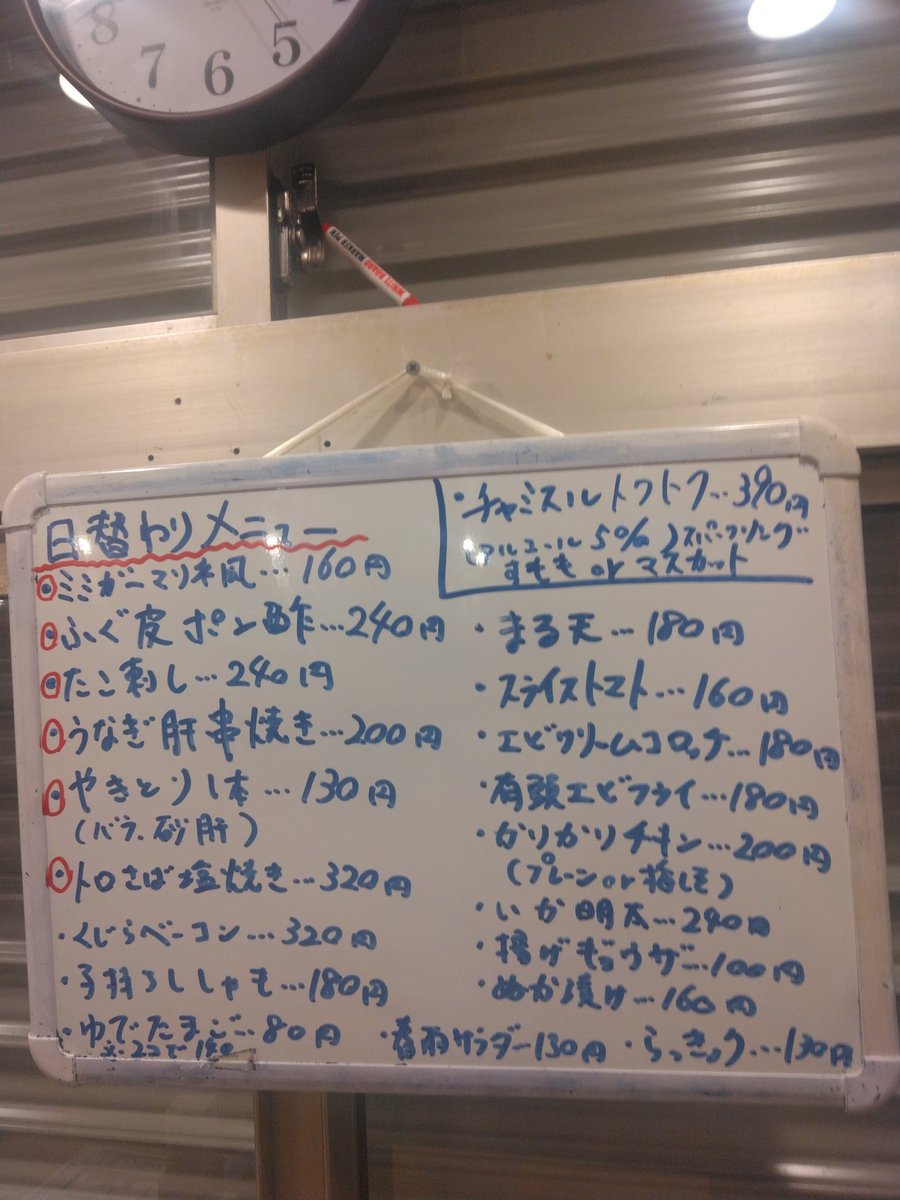 8 7 6 5
QUARTZ
WHITE BOARD MARKER PEN
日替わりメニュー
・ミミガーマリネ風…160円
・ふぐ皮ポン酢…240円
・たこ刺し…240円
・うなぎ肝串焼き…200円
・やきとり1本…130円
(バラ、砂肝)
・トロさば塩焼き…320円
・くじらベーコン…320円
・子持ちししゃも…180円
・ゆでたまご…80円
※2コで150
・チャミスルトクトク…390円
(アルコール5%)スパークリング
すもも or マスカット
・まる天…180円
・スライストマト…160円
・エビクリームコロッケ…180円
・有頭エビフライ…180円
・かりかりチキン…200円
(プレーン or 梅しそ)
・いか明太…240円
・揚げギョウザ…100円
・ぬか漬け…160円
・春雨サラダ…130円
・らっきょう…130円